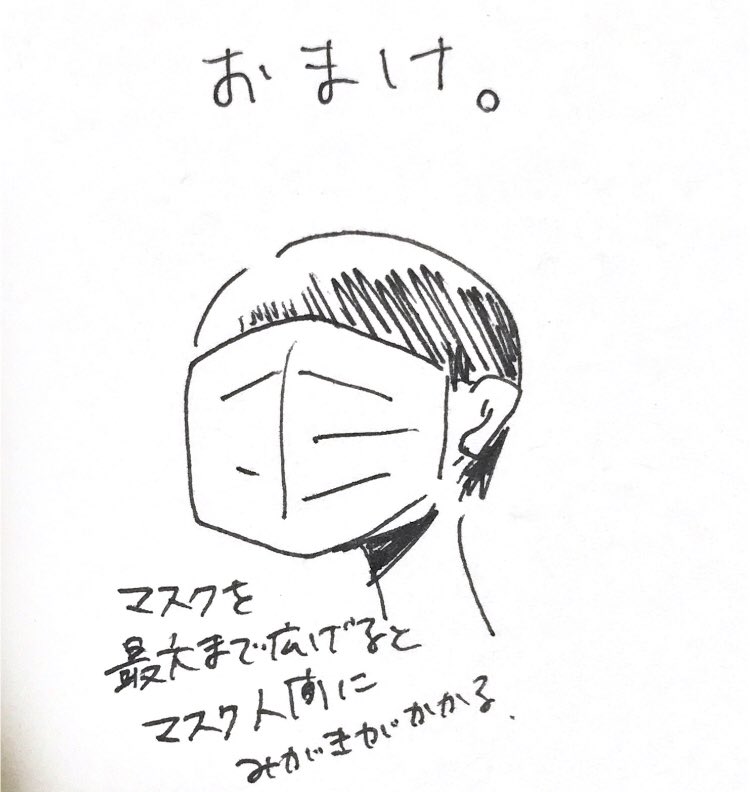 おまけ。
マスクを
最大まで広げると
マスク人間に
みがきがかかる.